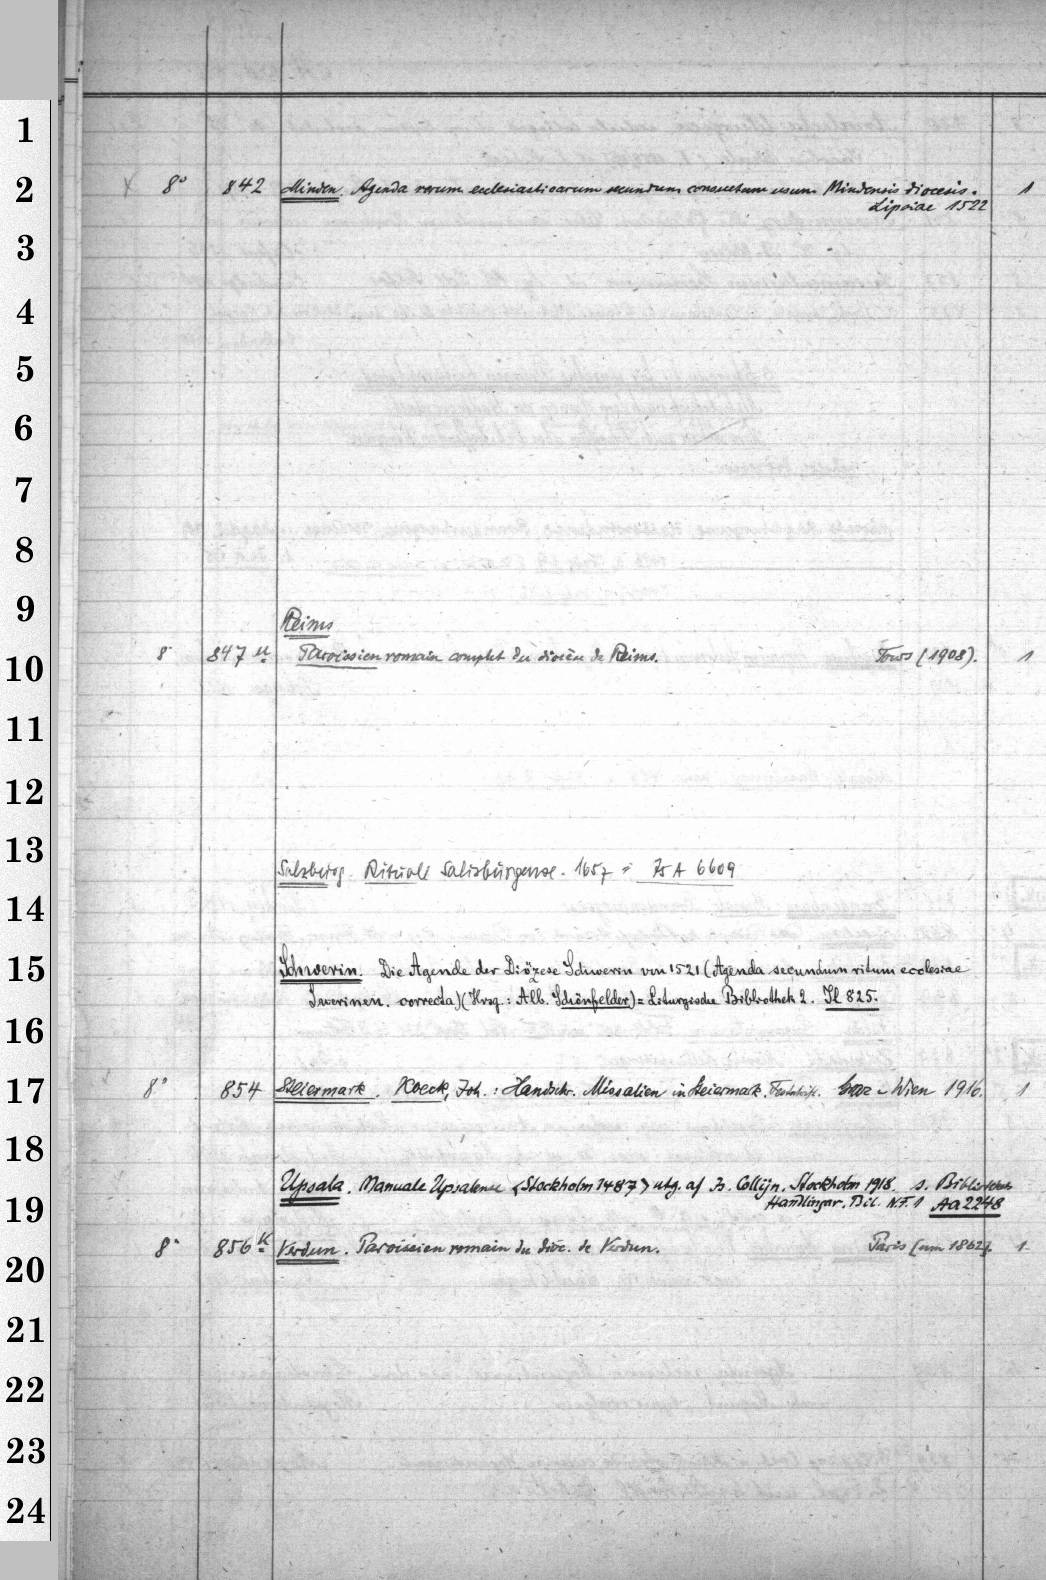 1
2
3
4
5
6
7
8
9
10
11
12
13
14
15
16
17
18
19
20
21
22
23
24
8° 842 Minden. Agenda rerum ecclesiasticarum secundum consuetum usum Mindensis diocesis. 1
Lipsiae 1522
Reims
8° 847 u Paroissien romain complet du diocèse de Reims. Tours (1908). 1
Salzburg. Rituale Salisburgense. 1657 = A 6609
Schwerin. Die Agende der Diözese Schwerin von 1521 (Agenda secundum ritum ecclesiae
Swerinen. correcta) (Hrsg.: Alb. Schönfelder) = Liturgische Bibliothek 2. Jl 825.
8° 854 Steiermark. Koeck, Joh.: Handschr. Missalien in Steiermark. Festschrift. Graz u Wien 1916. 1
Upsala. Manuale Upsalense <Stockholm 1487> utg. af Is. Collijn. Stockholm 1918 s.
Handlingar. Bil. N.F. 1 Aa 2248
8° 856 k Verdun. Paroissien romain du dioc. de Verdun. Paris [um 1862]. 1